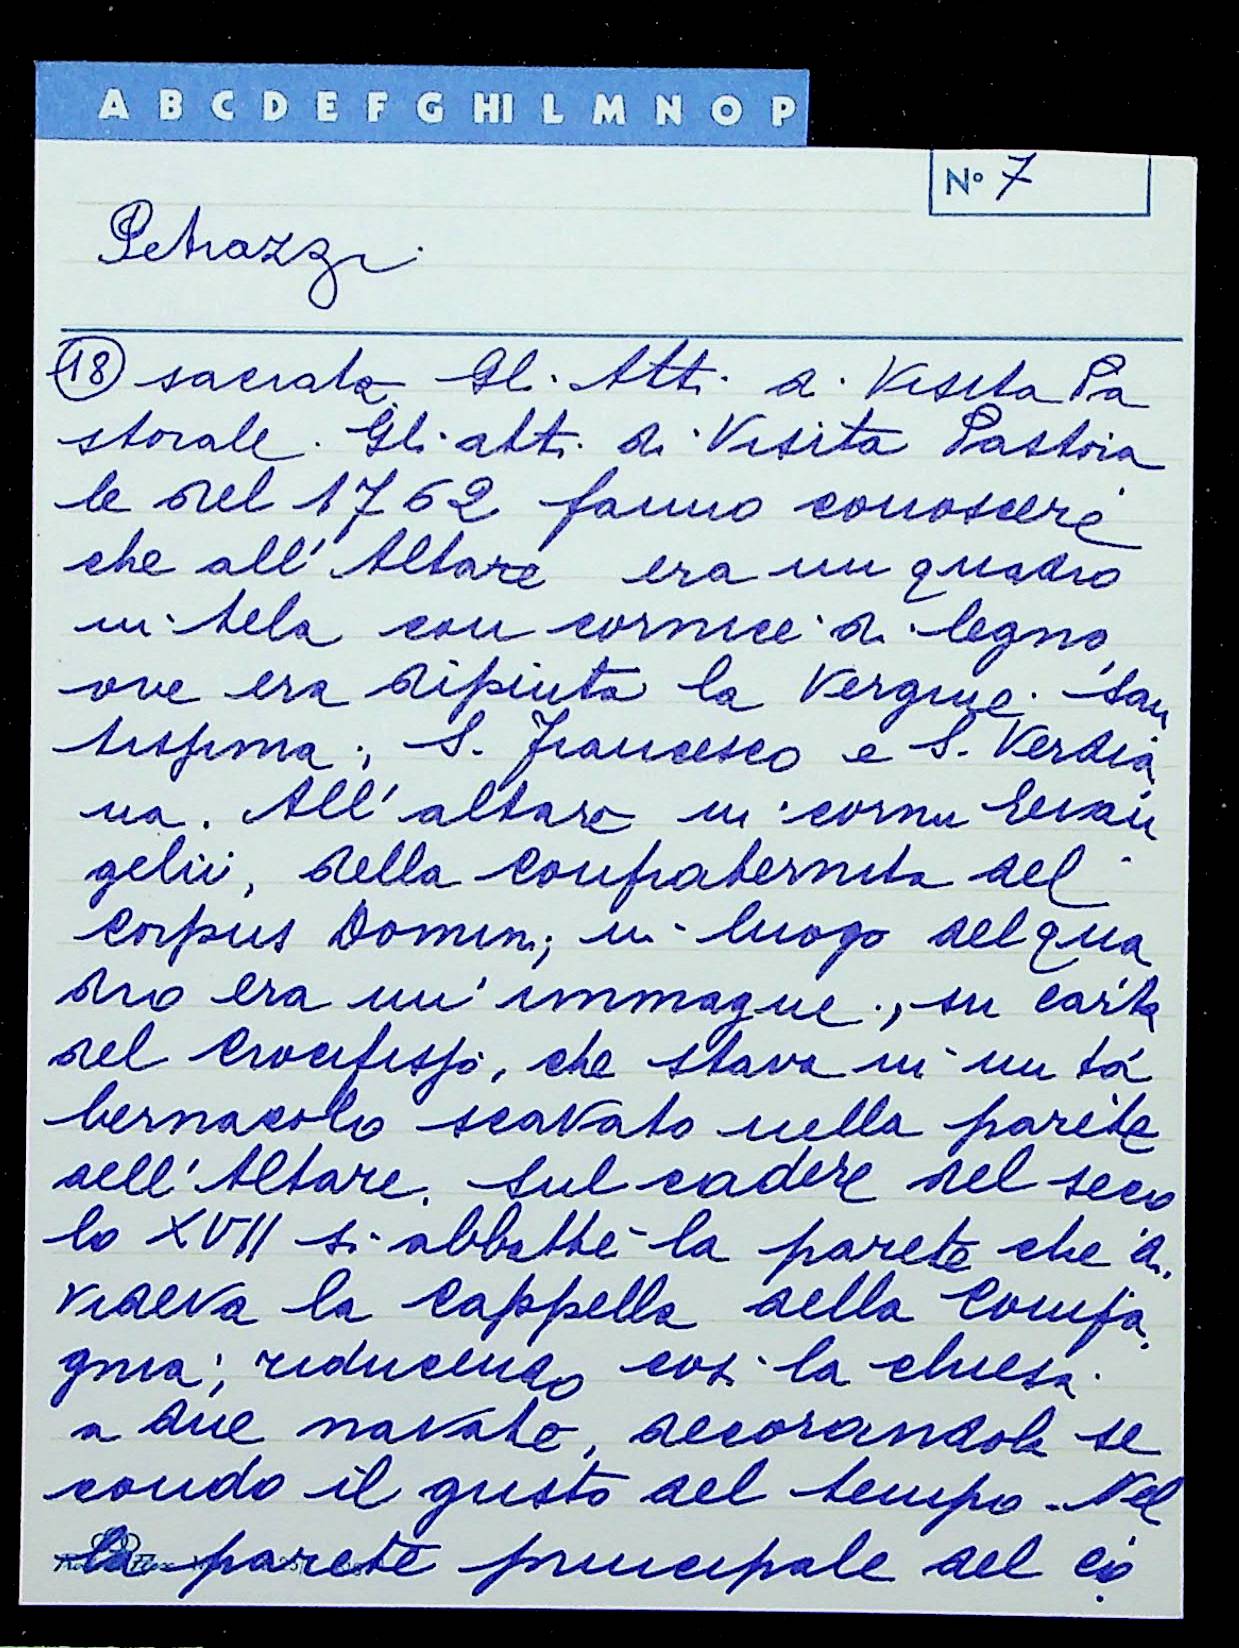 A B C D E F G HI L M N O P
N° 7
Petrazzi
18 sacrata. Gli Atti di Visita Pa
storale. Gli atti di Visita Pastora
le del 1762 fanno conoscere
che all'Altare era un quadro
in tela con cornice di legno,
ove era dipinta la Vergine San
tissima, S. Francesco e S. Verdia
na. All'altare in cornu Evan
gelii, della Confraternita del
Corpus Domini, in luogo del qua
dro era un'immagine, su carta
del Crocifisso, che stava in un ta
bernacolo scavato nella parete
dell'Altare. Sul cadere del seco
lo XVII si abbatté la parete che di
videva la Cappella della Compa
gnia; riducendo così la chiesa
a due navate, decorandola se
condo il gusto del tempo. Nel
la parete principale del